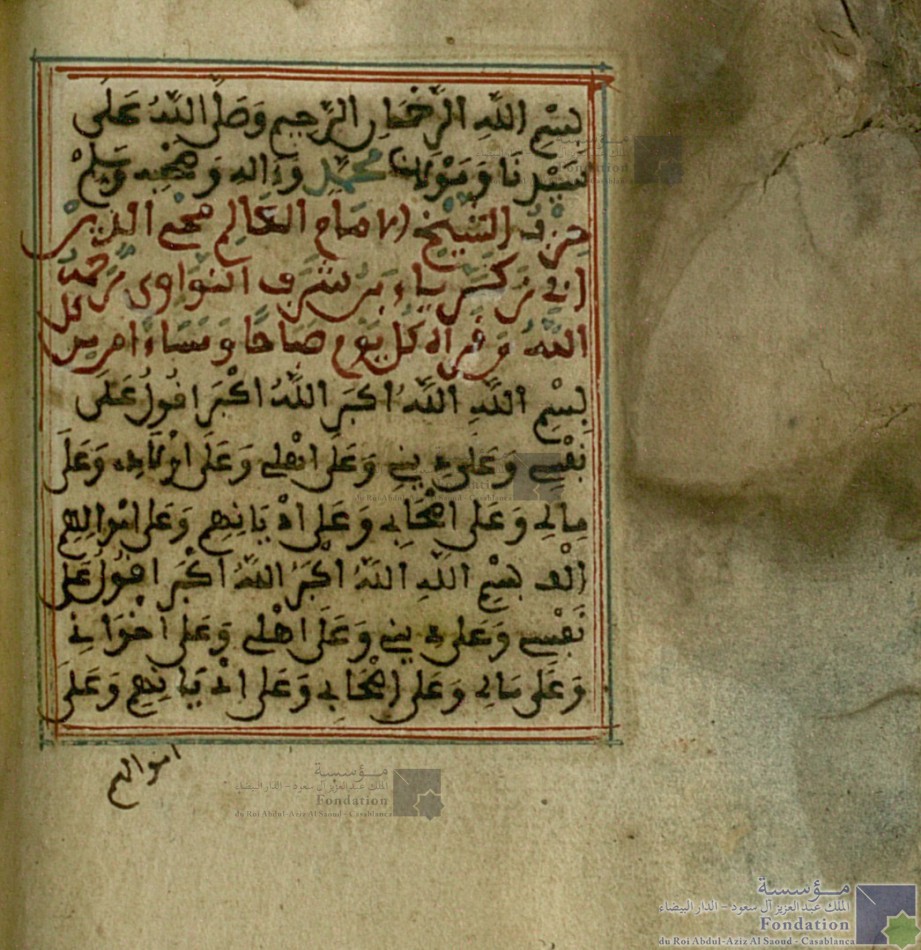 بِسْمِ اللَّهِ الرَّحْمَانِ الرَّحِيمِ وَصَلَّى اللَّهُ عَلَى
سَيِّدِنَا وَمَوْلَانَا مُحَمَّدٍ وَءَالِهِ وَصَحْبِهِ وَسَلِّمْ
حِزْبُ الشَّيْخِ الامَامِ العَالِمِ مُحْيِ الدِّينْ
ابِي زَكَرِيَاءِ بْن شَرَفِ النَّوَاوِي رَحِمَهُ
اللَّهُ وَقِرَاءَتُهُ كُلَّ يَوْمٍ صَبَاحًا وَمَسَاءً
بِسْمِ اللَّهِ اللَّهُ اكْبَر اللَّهُ اكْبَر اقُولُ عَلَى
نَفْسِي وَعَلَى دِينِي وَعَلَى اهْلِي وَعَلَى اوْلَادِي وَعَلَى
مَالِي وَعَلَى اصْحَابِي وَعَلَى ادْيَانِهِمْ وَعَلَى امْوَالِهِمْ
الْف بِسْمِ اللَّهِ اللَّهُ اكْبَرُ اللَّهُ اكْبَر اقُولُ عَلَى
نَفْسِي وَعَلَى دِينِي وَعَلَى اهْلِي وَعَلَى اخْوَانِي
وَعَلَى مَالِي وَعَلَى اصْحَابِي وَعَلَى ادْيَانِهِمْ وَعَلَى
اموالهم
مؤسسة
الملك عبد العزيز آل سعود - الدار البيضاء
Fondation
du Roi Abdul-Aziz Al Saoud - Casablanca
مؤسسة
الملك عبد العزيز آل سعود - الدار البيضاء
Fondation
du Roi Abdul-Aziz Al Saoud - Casablanca